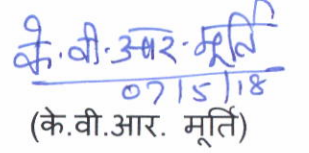 के.वी.आर.मूर्ति
07/5/18
(के.वी.आर. मूर्ति)